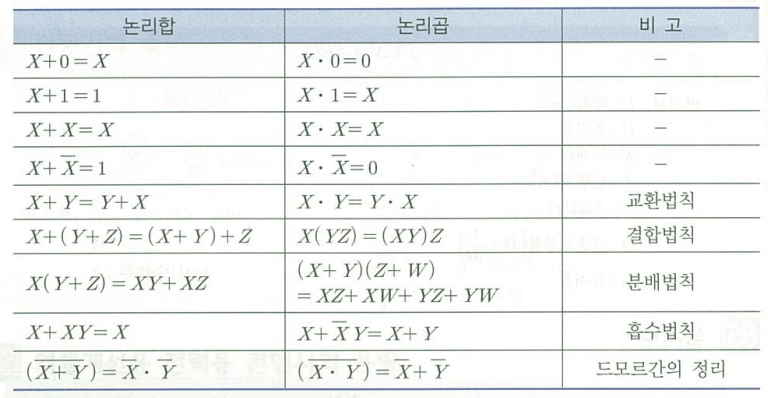 논리합 논리곱 비 고
X+0=X X·0=0 −
X+1=1 X·1=X −
X+X=X X·X=X −
X+X̅=1 X·X̅=0 −
X+Y=Y+X X·Y=Y·X 교환법칙
X+(Y+Z)=(X+Y)+Z X(YZ)=(XY)Z 결합법칙
X(Y+Z)=XY+XZ (X+Y)(Z+W) 분배법칙
=XZ+XW+YZ+YW
X+XY=X X+X̅Y=X+Y 흡수법칙
(X̅+̅Y̅)=X̅·Y̅ (X̅·̅Y̅)=X̅+Y̅ 드모르간의 정리